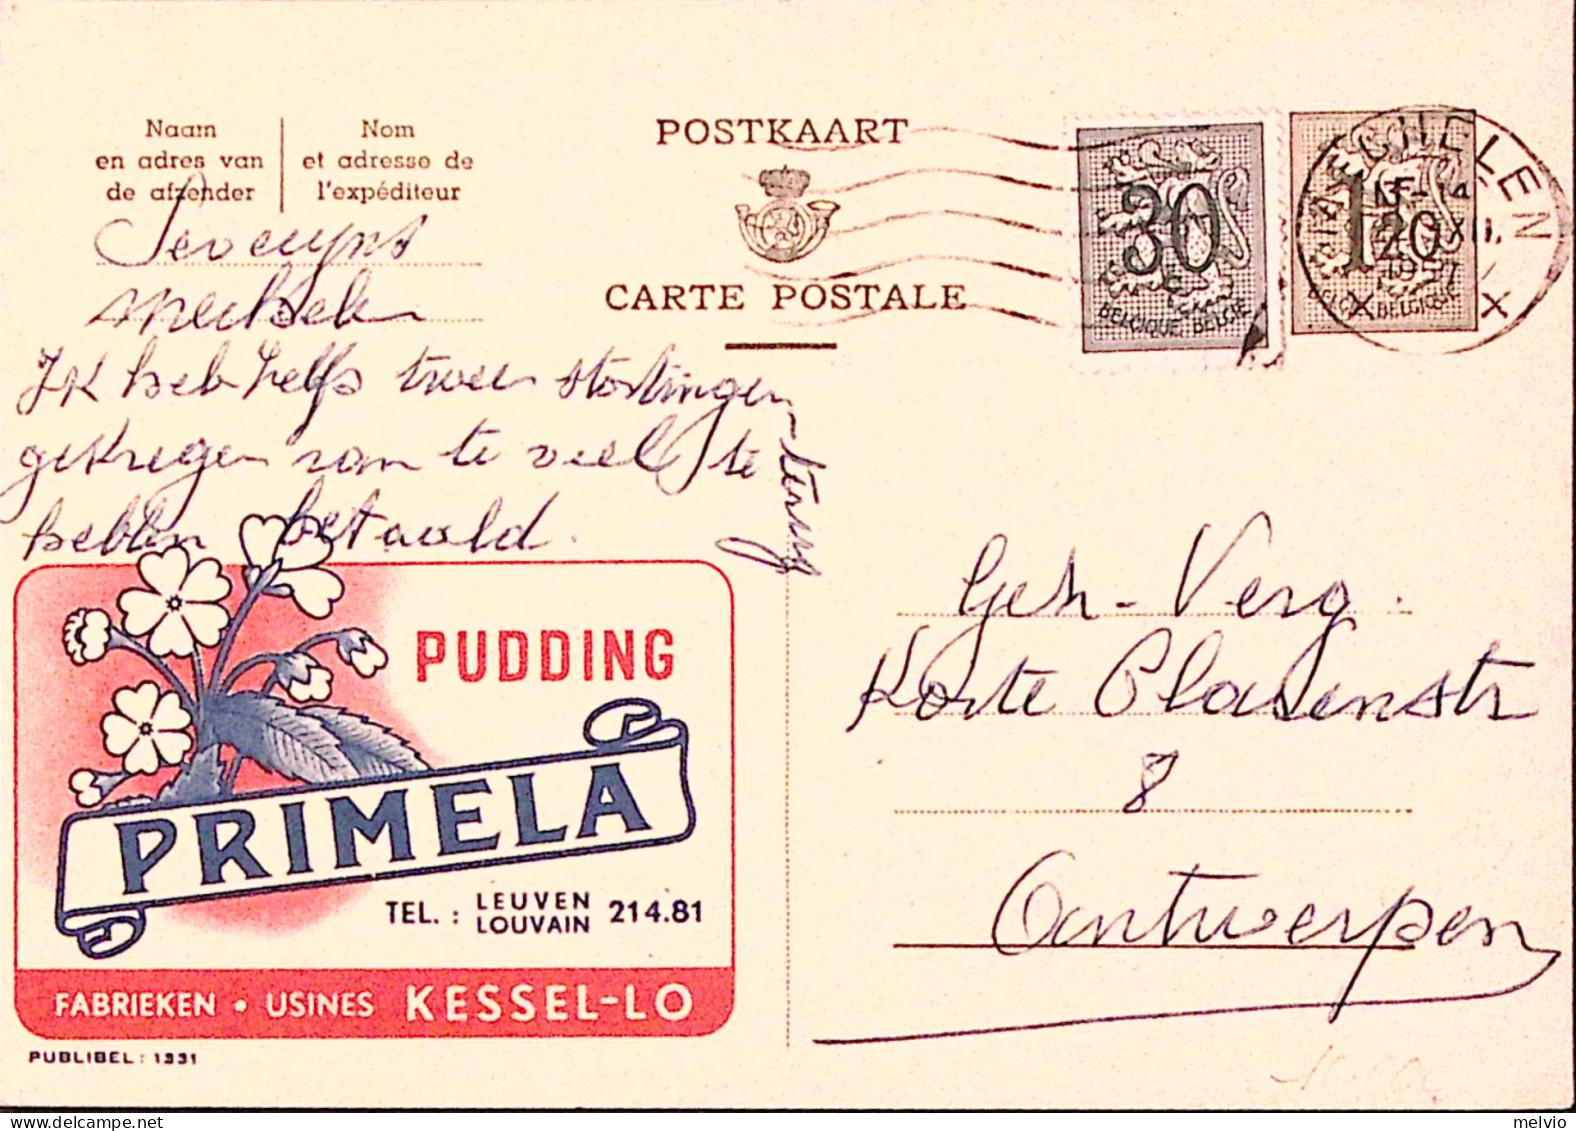 Naam
en adres van
de afzender
Nom
et adresse de
l'expéditeur
POSTKAART
CARTE POSTALE
30
c
BELGIQUE-BELGIË
120
BELGIQUE
MECHELEN
XII
1957
X X
Mechelen
Ik heb zelfs twee stortingen
gekregen van te veel te
hebben betaald.
terug
PUDDING
PRIMELA
TEL. : LEUVEN
LOUVAIN 214.81
FABRIEKEN • USINES KESSEL-LO
PUBLIBEL: 1331
Geh-Verg.
Korte Clarenstr
8
Antwerpen
melvio